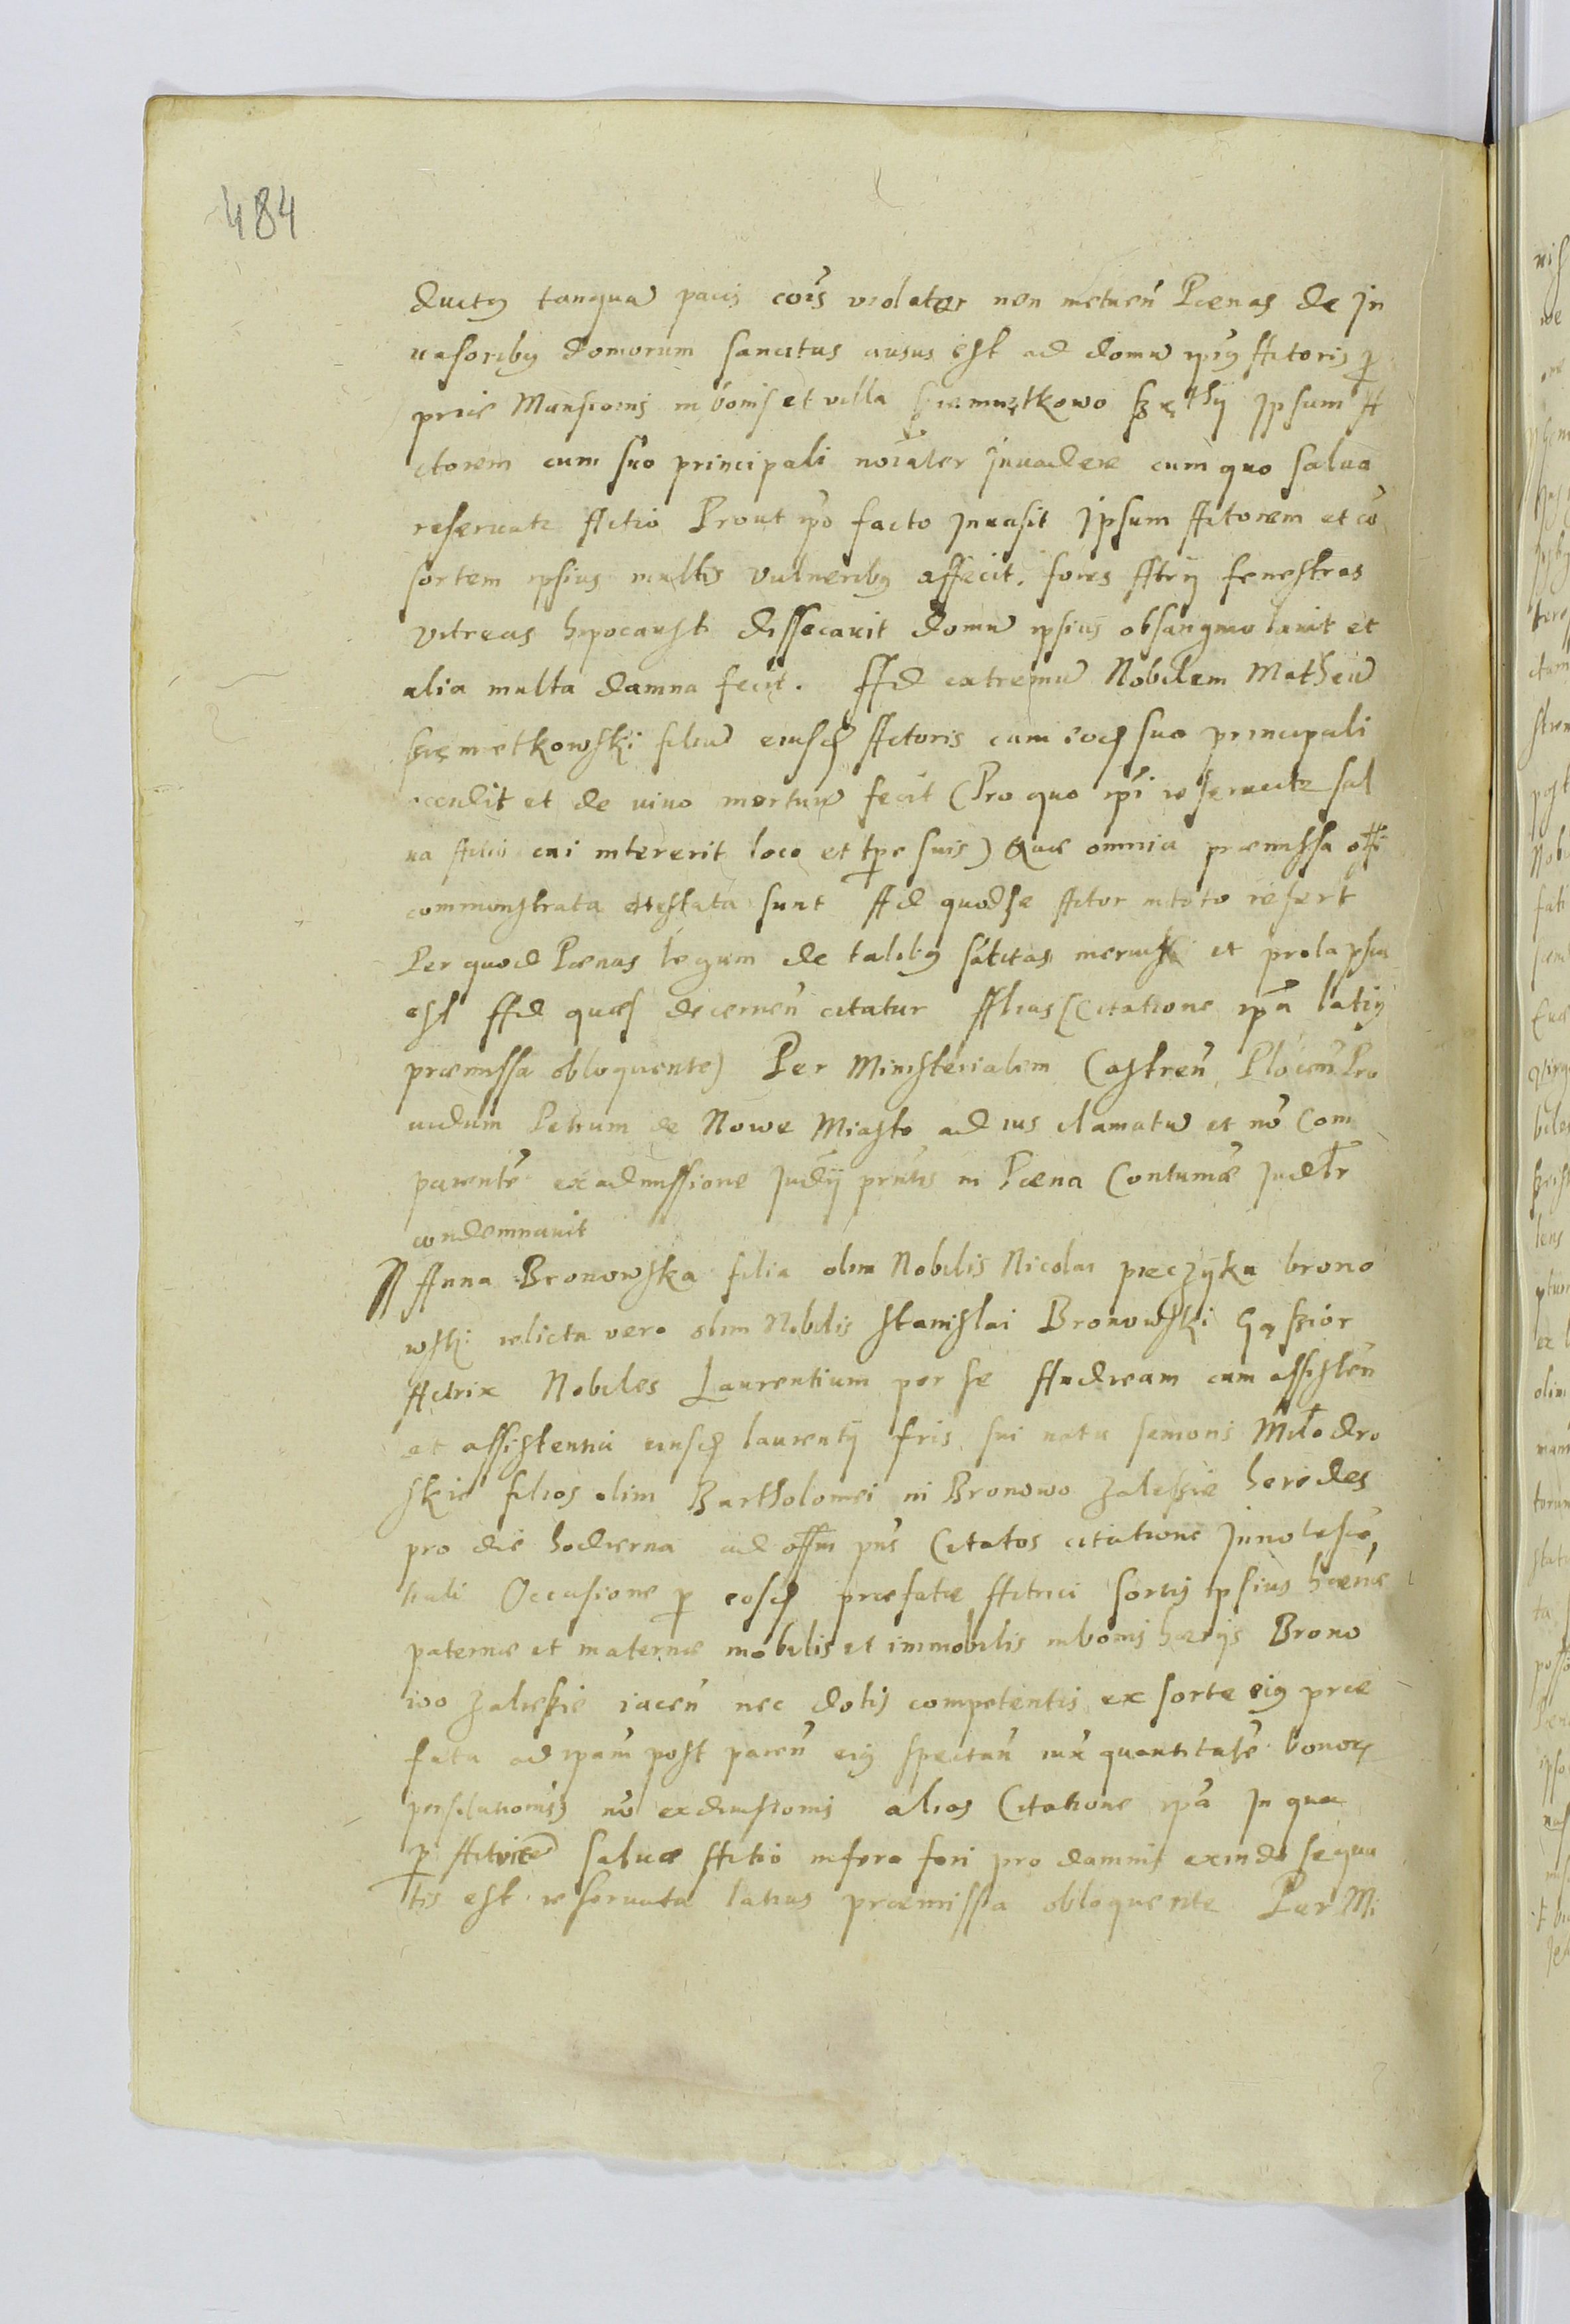 484
ductꝯ tanquã pacis cois̃ violator non metueñ Pœnas de In
uasoribꝯ domorum sancitus ausus est ad domũ ipiꝯ Actoris ꝑ
priæ Mansionis in bonis et villa Szẹthÿ Ipsum A
ctorem cum suo principali noĩater Inuadere cum quo salua
reseruatr Actio Prout ip̃o facto Inuasit Ipsum Actorem et cõ
sortem ipsius multis vulneribꝯ affecit. fores Atrij fenestras
vitreas hipocausti dissecauit domũ ipsius obsanguinolauit et
alia multa damna fecit. Ad extremũ Nobilem Matheũ
Szięmietkowski filiũ eiusd Actoris cum eod suo principali
occidit et de viuo mortuũ fecit (Pro quo ip̃i reseruatr sal
ua Actio cui intererit loco et tp̃re suis) Quæ omnia præmissa offi
commonstrata attestata sunt Ad quod se Actor in toto refert
Per quod Pœnas legum de talibꝯ sãcitas meruisti et prolapsa
est Ad quas decerneñ citatur Alias (Citatione ip̃a latiꝯ
præmissa obloquente) Per Ministerialem Castreñ Ploceñ Pro
uidum Petrum de Nowe Miasto ad ius clamatũ et nõ Com
parentẽ ex admissione Judij prñtis in Pœna Contumæ Judłr
condemnauit
Anna Bronowska filia olim Nobilis Nicolai pieczÿka brono
wski relicta vero olim Nobilis Stanislai Bronowski Gąszior
Actrix Nobiles Laurentium per se Andream cum assisteñ
et assistentia eiusd laurentij fris sui natu senioris Miłodro
skie filios olim Bartholomei in Bronowo Zaleszie heredes
pro die hodierna ad offm pñs Citatos citatione Innotescẽ,
tiali Occasione ꝑ eosd præfatæ Actrici sortis ipsius hæriæ
paternæ et maternæ mobilis et immobilis in bonis hærijs Brono
wo Zalieszie iaceñ nec dotis competentis ex sorte eiꝯ præ
fata ad ipam post pareñ eiꝯ spectañ iux quantitatẽ bonoꝝ
persolutionis nõ extradditionis alias Citatione ip̃a In qua
ꝑ Actricẽ saluæ Actio in foro fori pro damnis exinde sequu
tis est reseruata latius præmissa obloquente Per Mi